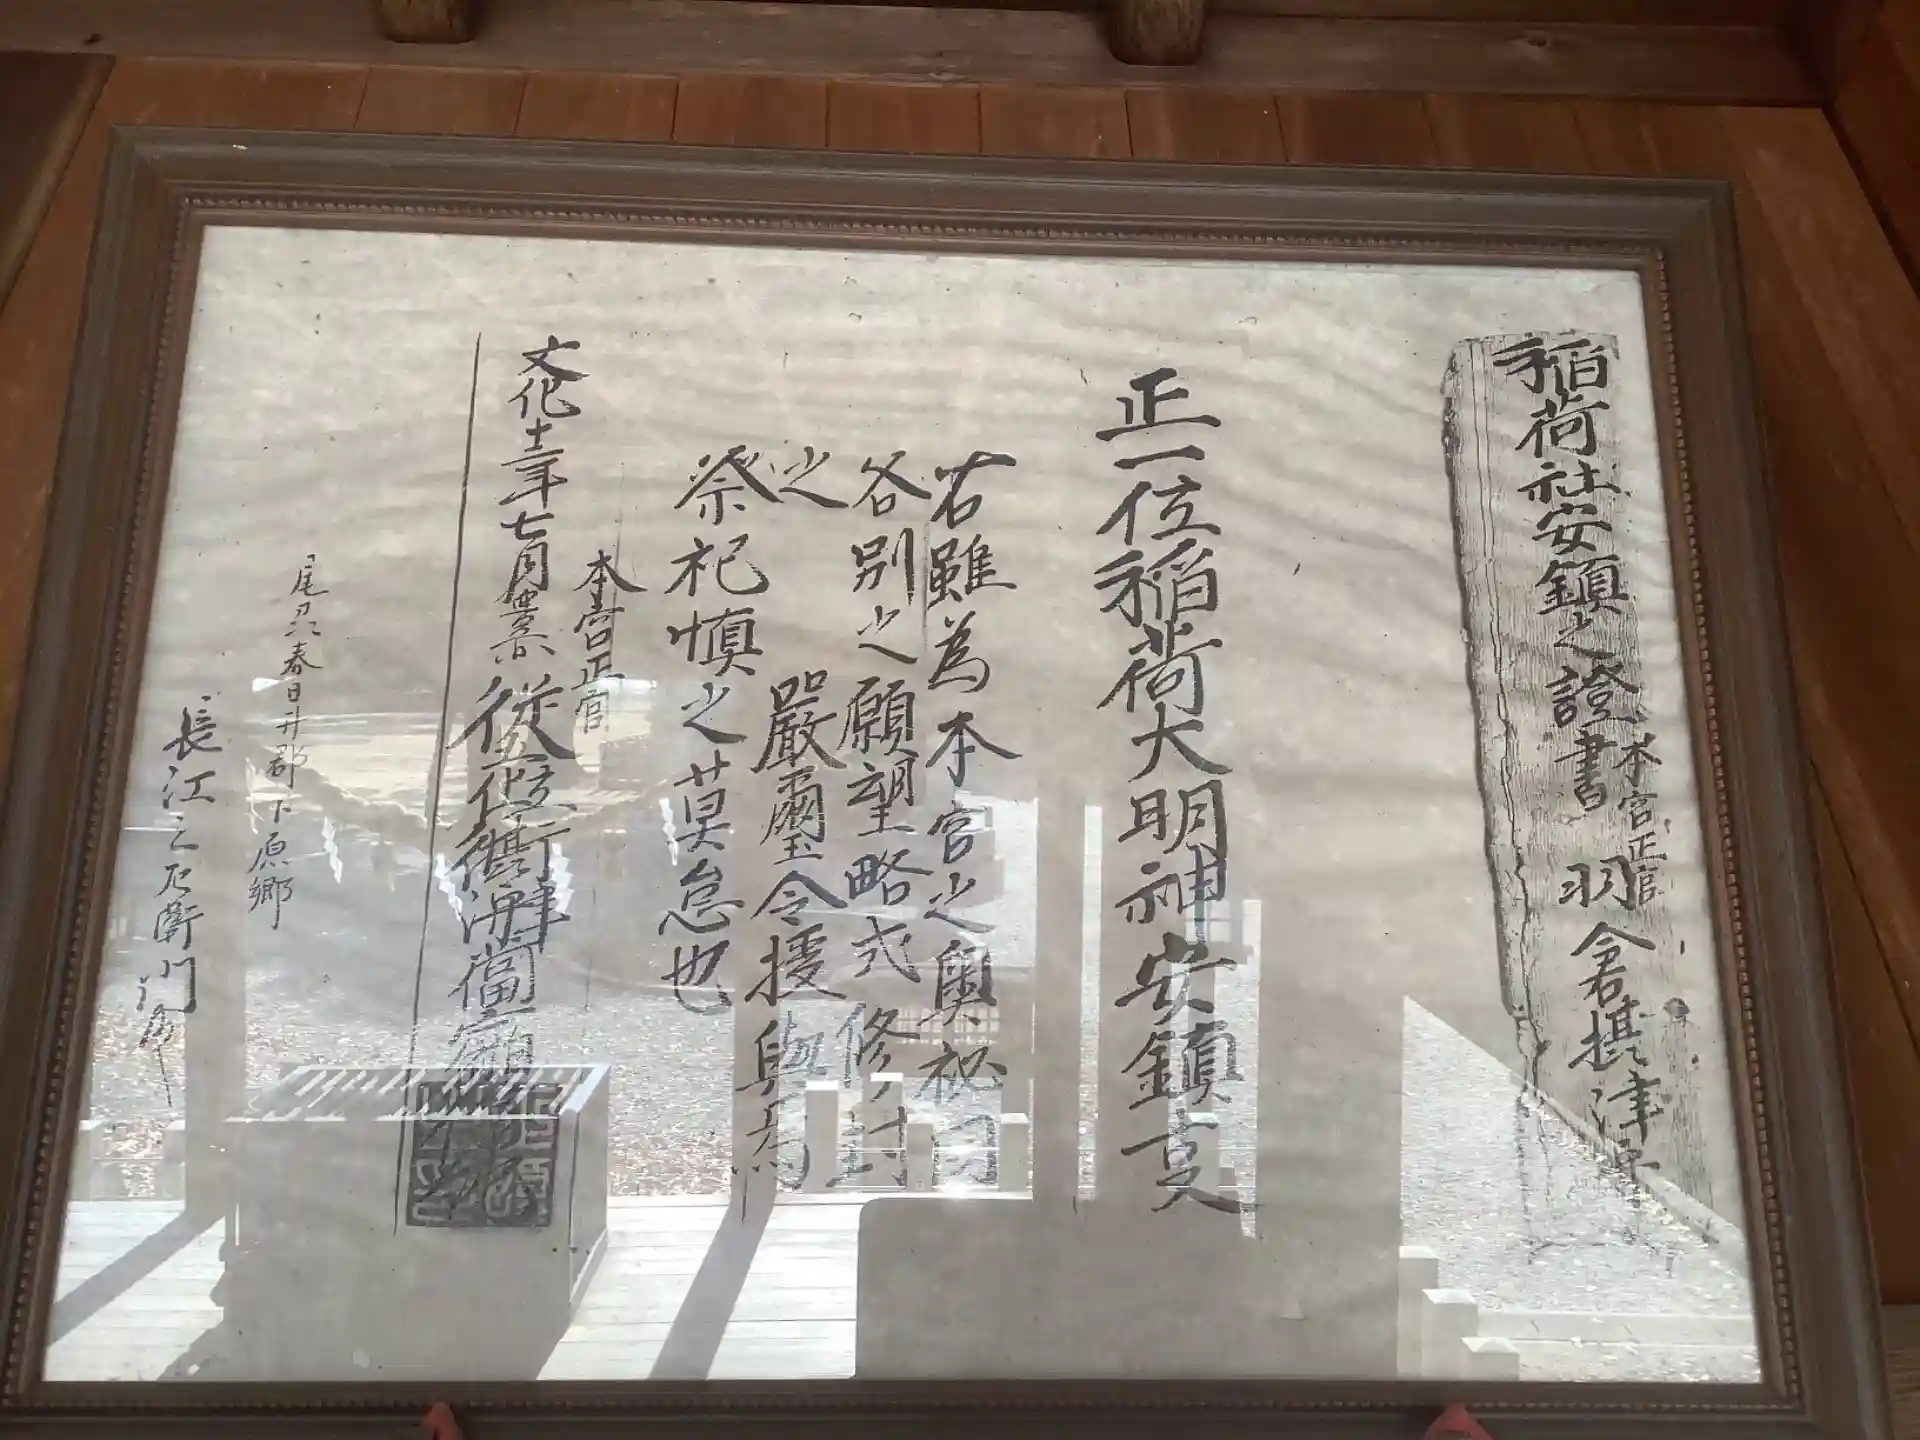 稲荷社安鎮之證書
本宮正官
羽倉摂津守
正一位稲荷大明神安鎮支
右雖為本宮之奥秘因
各別之願望略式修封
之
嚴璽令授與焉
祭祀慎之莫怠也
本宮正官
文化十三年七月
從五位
尾刕春日井郡下原郷
長江